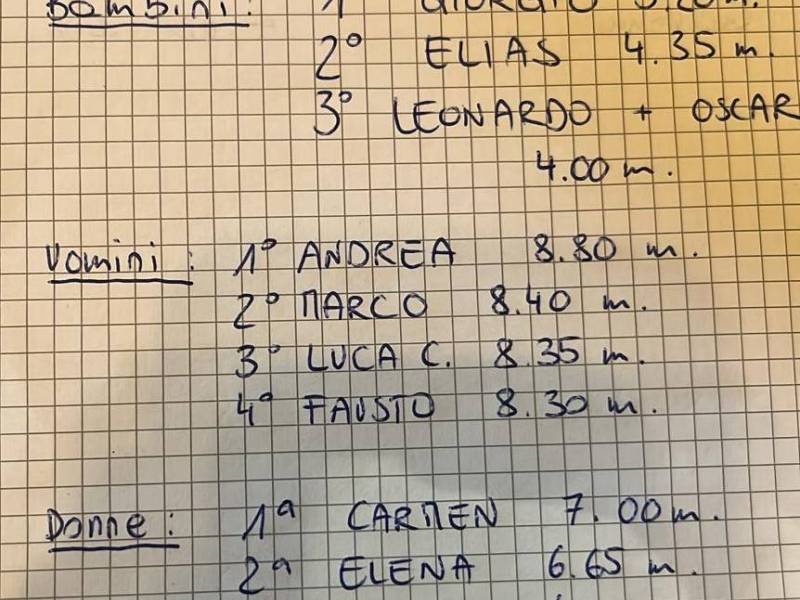 Bambini: 1°
2° ELIAS 4.35 m.
3° LEONARDO + OSCAR
4.00 m.
Uomini: 1° ANDREA 8.80 m.
2° MARCO 8.40 m.
3° LUCA C. 8.35 m.
4° FAUSTO 8.30 m.
Donne: 1ª CARMEN 7.00 m.
2ª ELENA 6.65 m.